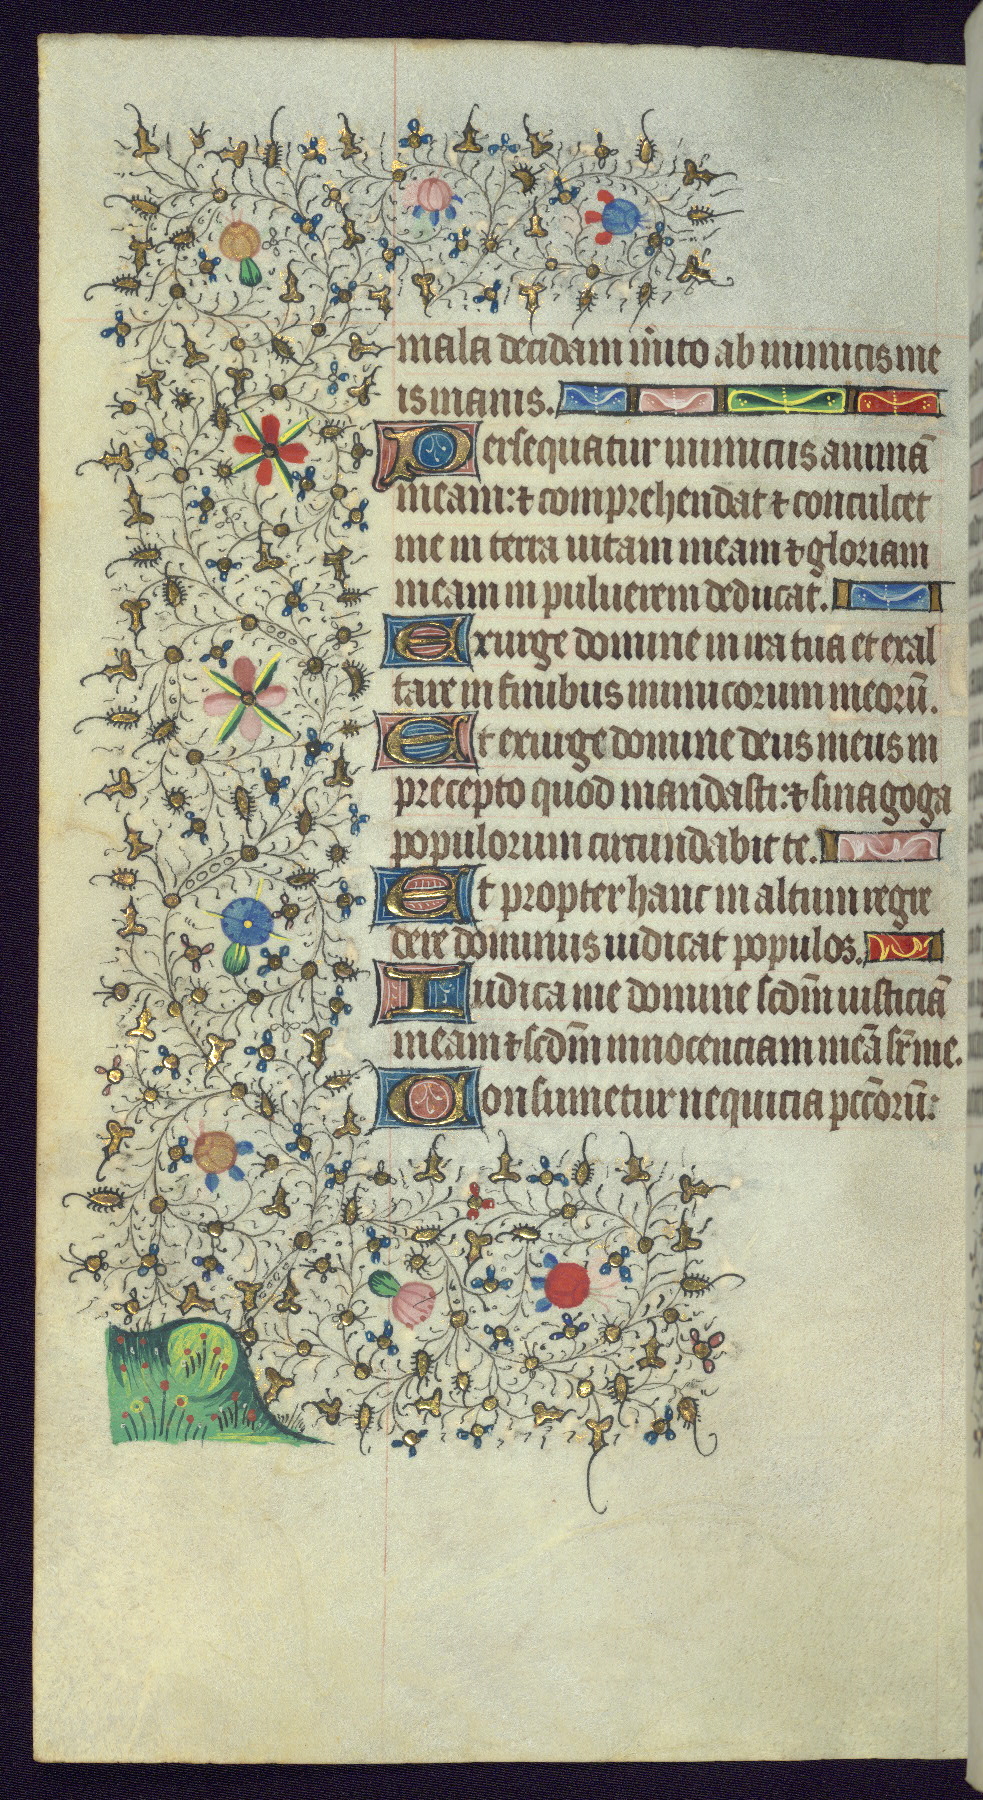 mala decidam mͥito ab inimicis me
is inanis.
Persequatur inimicus animā
meam: ⁊ comprehendat ⁊ conculcet
me in terra uitam meam ⁊ gloriam
meam in puluerem deducat.
Exurge domine in ira tua et exal
tare in finibus inimicorum meorū.
Et exurge domine deus meus in
precepto quod mandasti: ⁊ sinagoga
populorum circundabit te.
Et propter hanc in altum regre
dere dominus iudicat populos.
Iudica me domine scdm̄ iusticiā
meam ⁊ scdm̄ innocenciam meā sr̄ me.
Consumetur nequicia pcc̄orū: